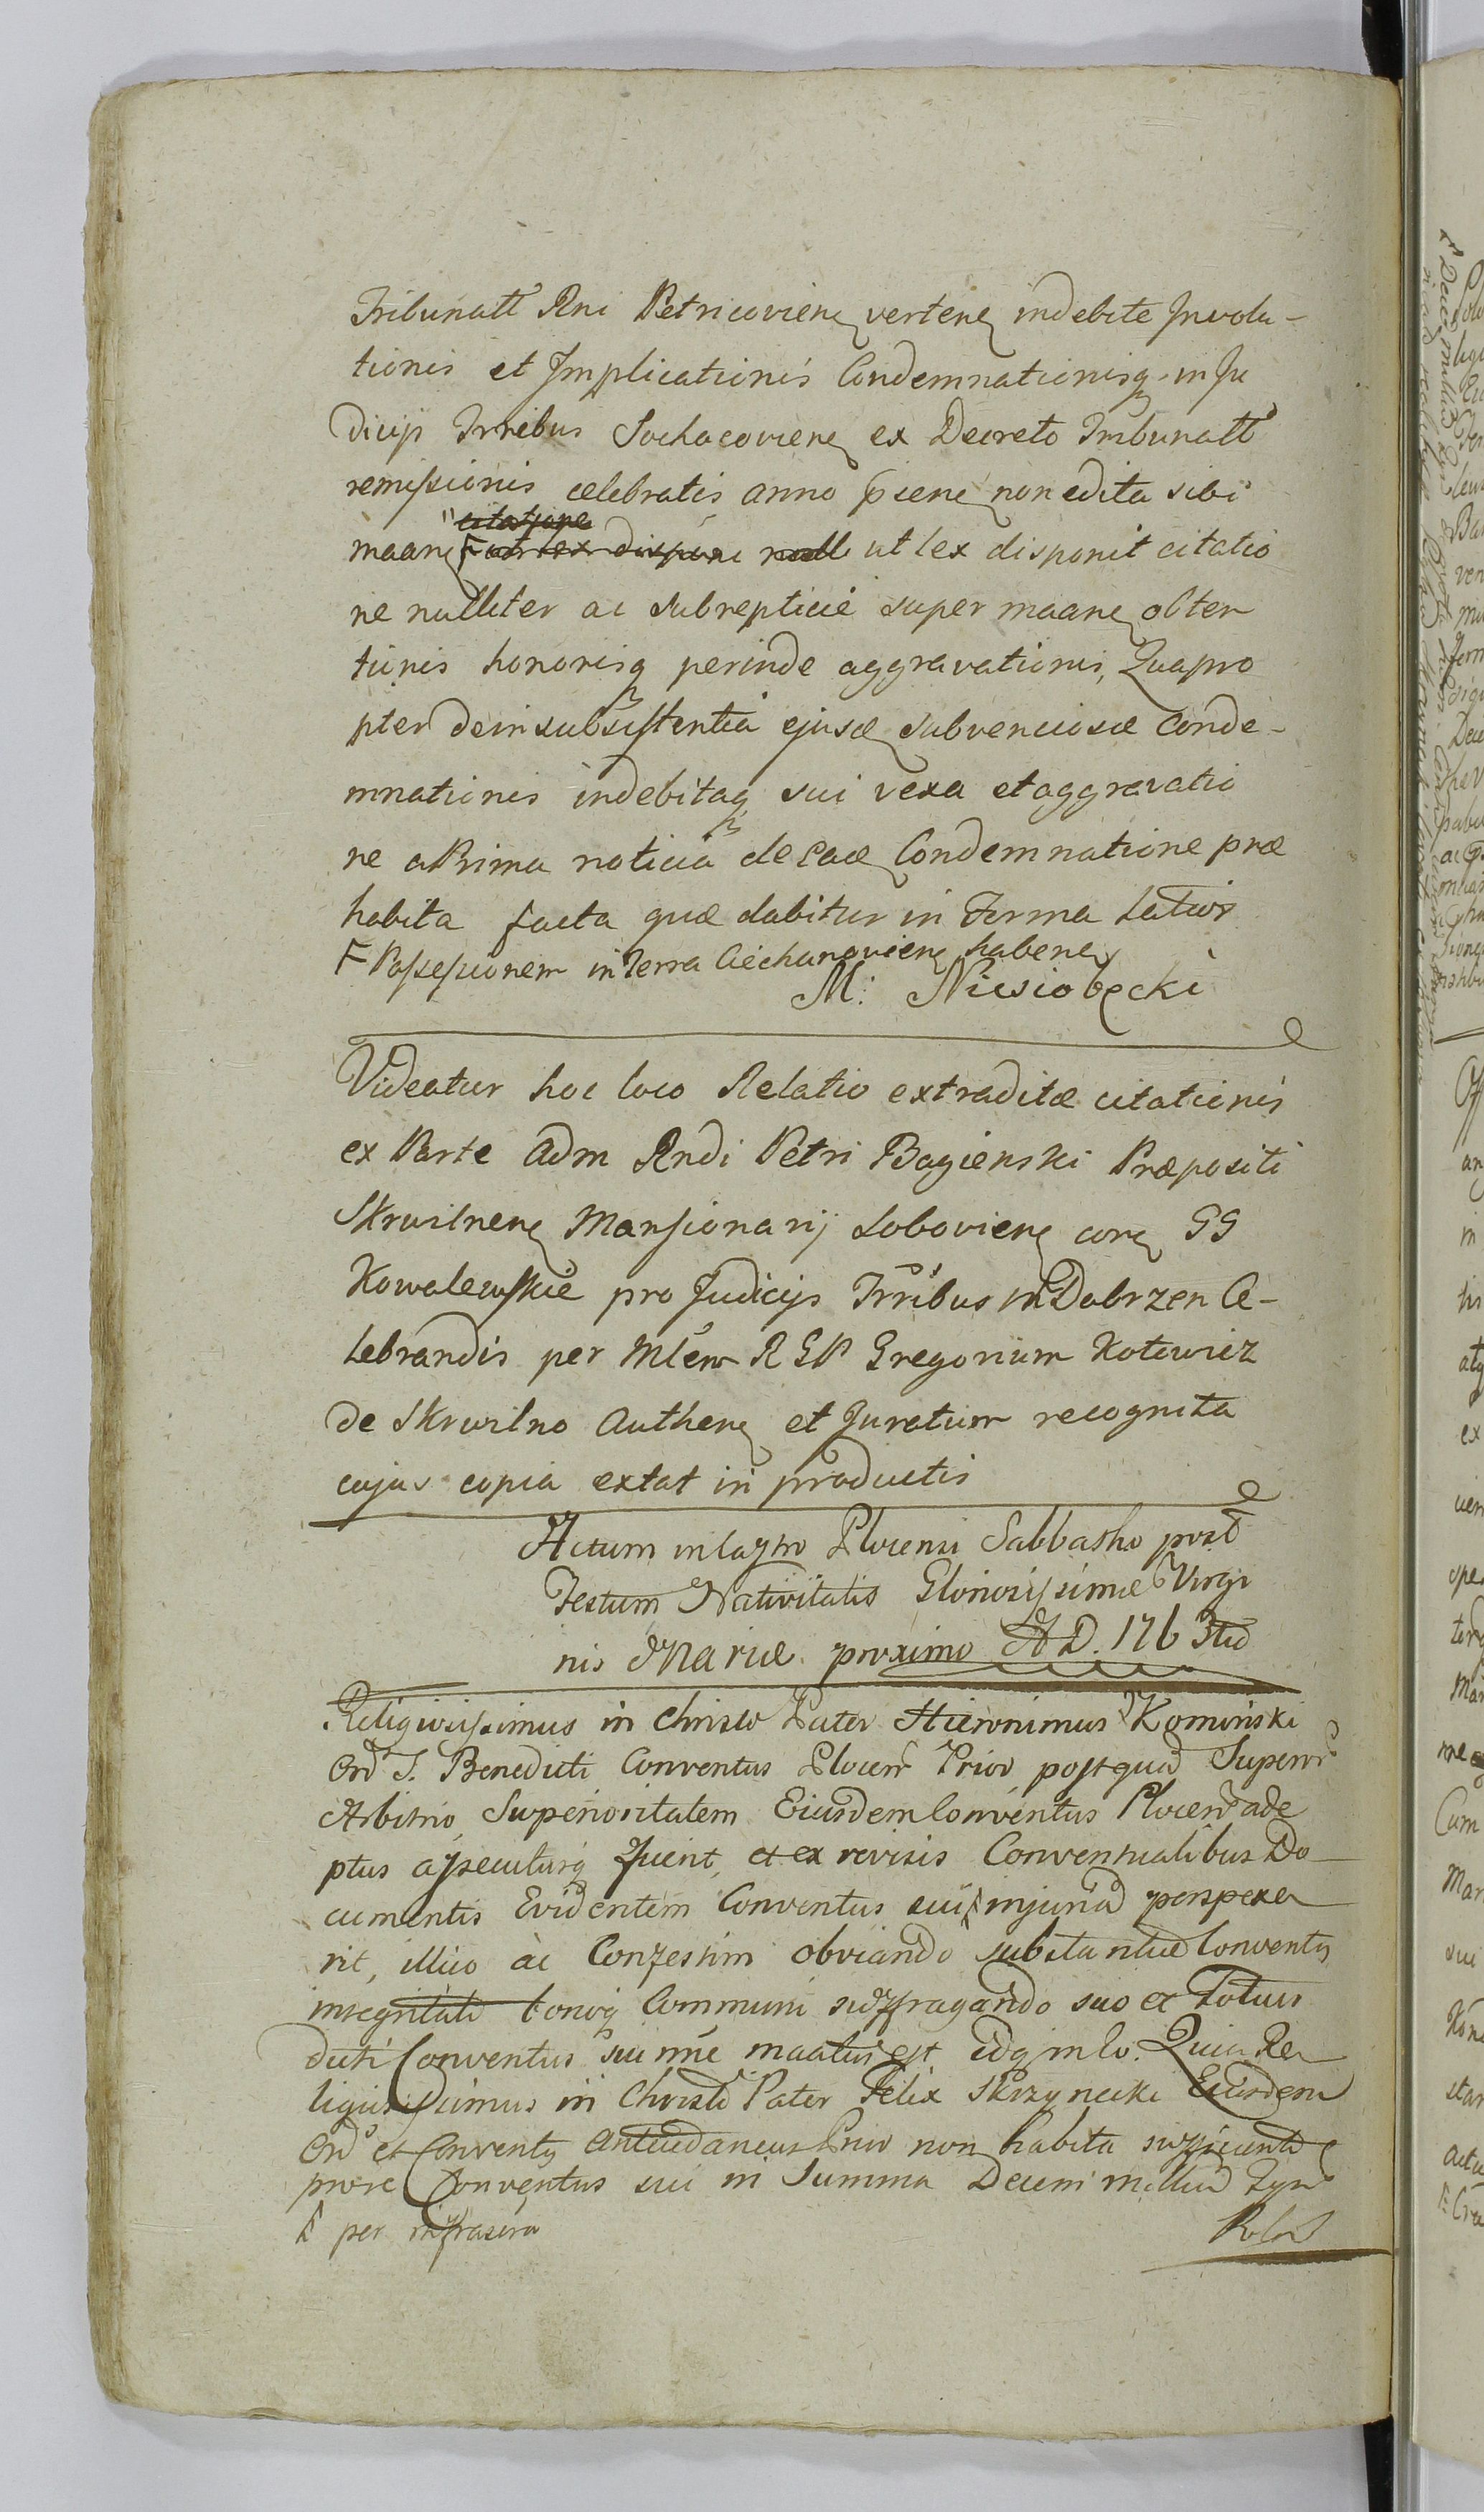 Tribunatt Rni Petricovienẹ vertenẹ indebite Involu-
tionis et Implicationis Condemnationisq in Ju
dicijs Trribus Sochacovienẹ ex Decreto Tribunatt
remissionis celebratis anno psenẹ non edita sibi
citatione
maanẹ F ut lex disponi null ut lex disponit citatio
ne nulliter ac subrepticie super maanẹ obten
tionis honorisq perinde aggravationis, Quapro
pter de insubsistentia ejusdẹ subvenciosæ Conde-
mnationis indebitaq sui vexa et aggravatio
ne a Prima noticia de eade Condemnatione præ
habita facta quæ dabitur in Forma latiori
F Possessionem in Terra Ciechanovienẹ habenẹ
M: Niesiobęcki
Videatur hoc loco Relatio extraditæ citationis
ex Parte Adm Rndi Petri Bagienski Præpositi
Skrwilnenẹ Mansionarij Lobovienẹ conẹ GG
Kowalewskie pro Judicijs Trribus in Dobrzen Ce-
lebrandis per Mlem R G P Gregorium Kotowicz
de Skrwilno Authenẹ et Juratum recognita
cujus copia extat in productis
Actum in Castro Plocensi Sabbatho post
Festum Nativitatis Gloriosissimæ Virgi
nis Mariæ proximo A D. 1763tio
Religiosissimus in Christo Pater Hieronimus Kominski
Ord S. Benedicti Conventus Plocen Prior postquã Superior
Arbitrio Superioritatem Eiusdem Conventus Plocen ade
ptus assecutusq fuerit, et ex revisis Conventualibus Do
cumentis Evidentem Conventus sui F injuriã perspexe
rit, illico ac Confestim obviando substantiæ Conventus
integritati bonoq Communi suffragando suo et Totius
dicti Conventus sui nne maatus est idq in eo. Quia Re
ligiosissimus in Christo Pater Felix Skrzynecki Eiusdem
Ord et Conventus Antecedaneus Prior non habita sufficienti
priore Conventus sui in Summa Decem milliũ flyn
F per infrascri
Polo